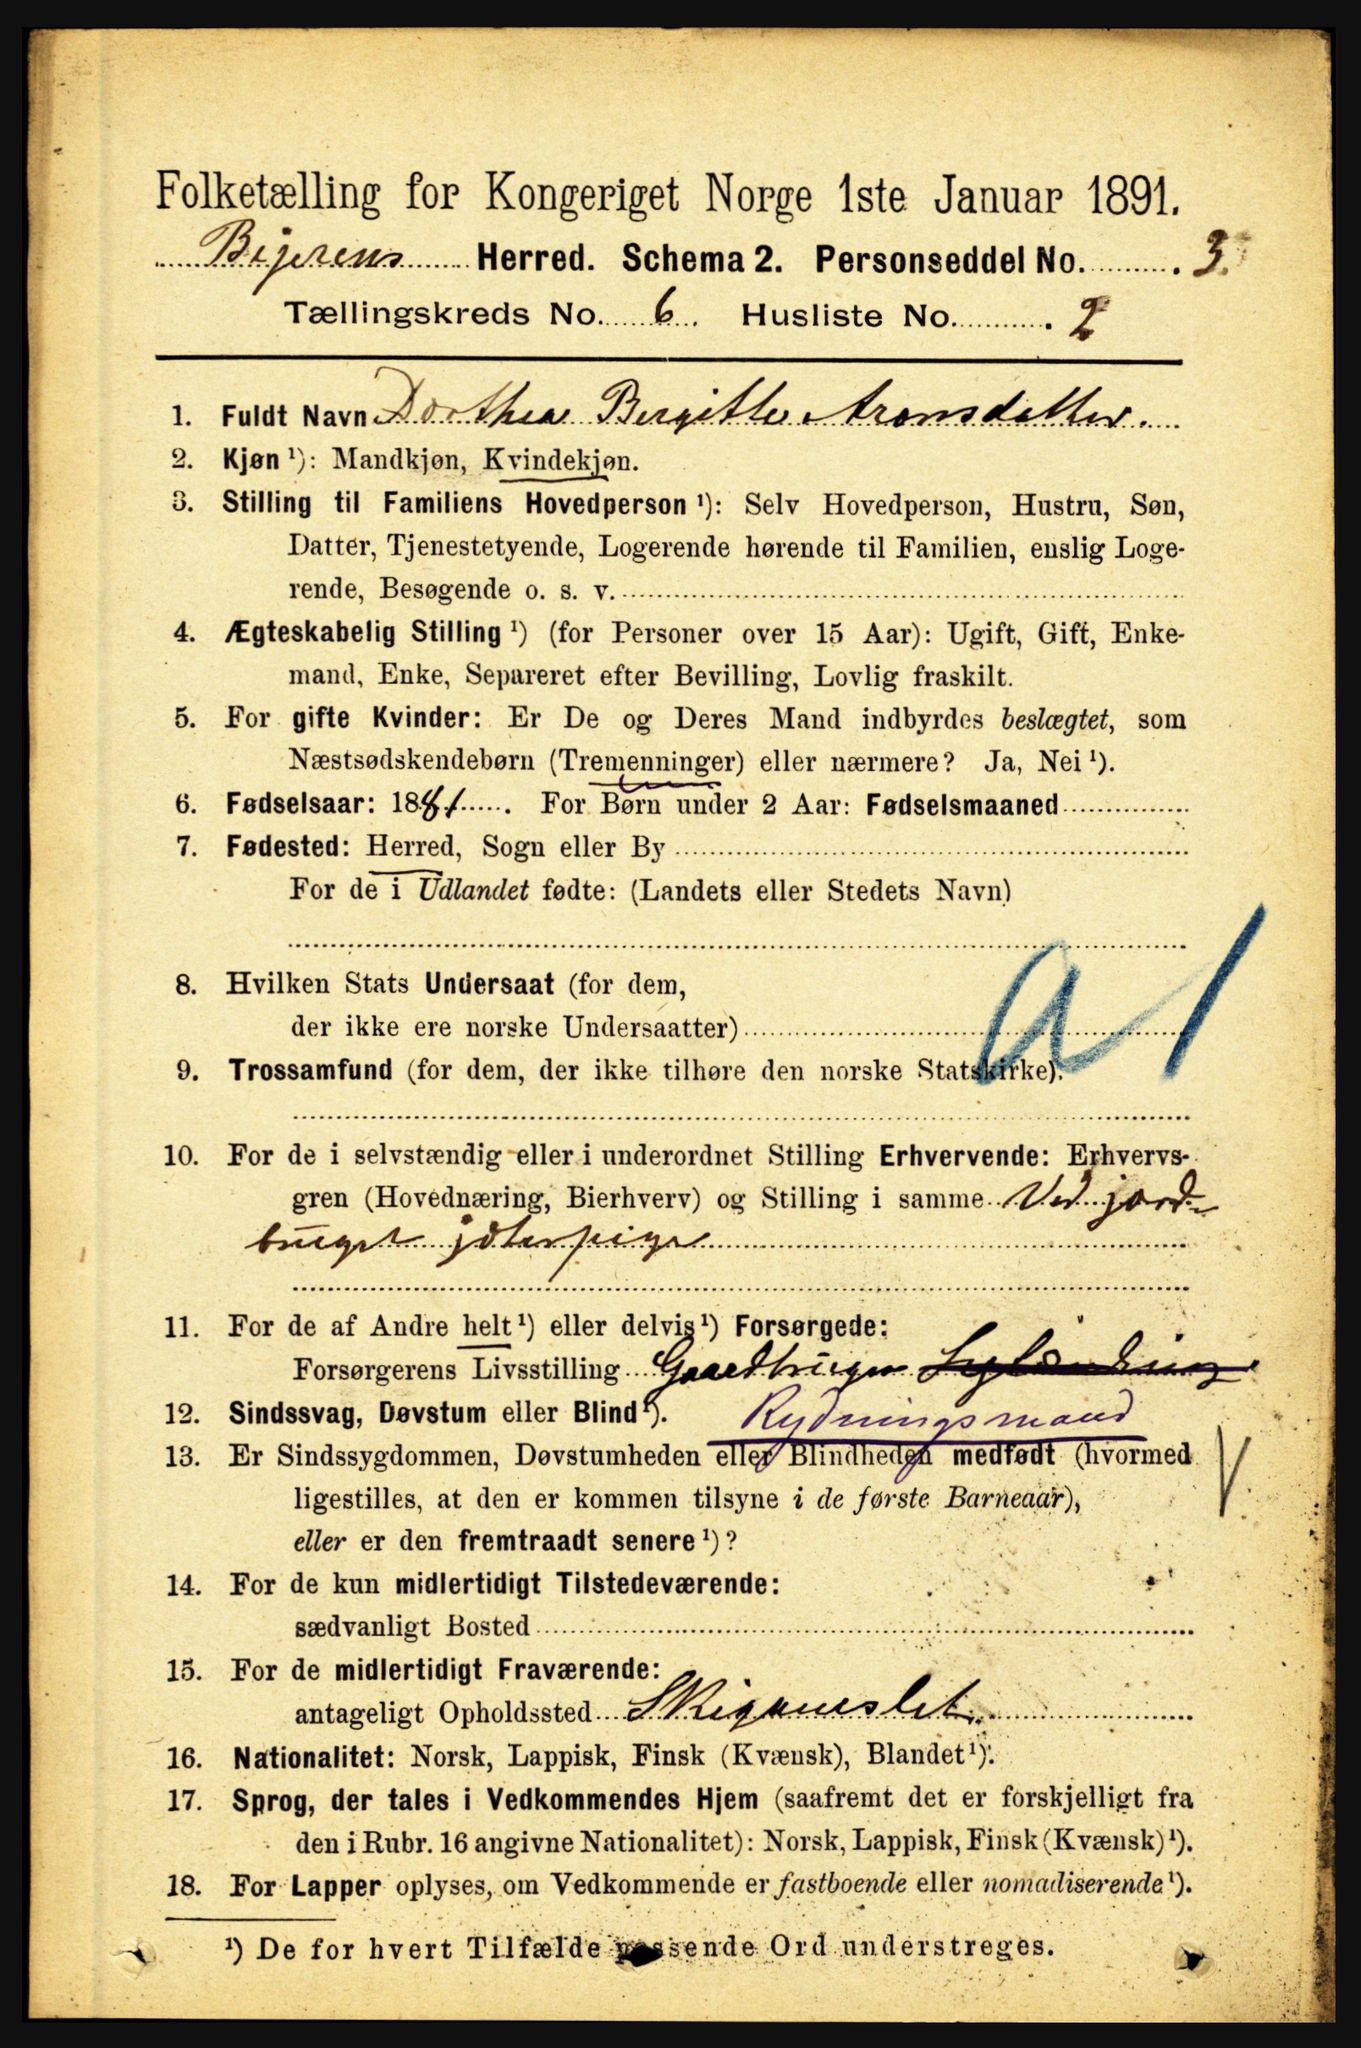 Folketælling for Kongeriget Norge 1ste Januar 1891.
Herred. Schema 2. Personseddel No. 3.
Tællingskreds No. 6. Husliste No. 2
1. Fuldt Navn Dorthea Bergitte Aronsdatter.
2. Kjøn ¹): Mandkjøn, Kvindekjøn.
3. Stilling til Familiens Hovedperson ¹): Selv Hovedperson, Hustru, Søn,
Datter, Tjenestetyende, Logerende hørende til Familien, enslig Loge-
rende, Besøgende o. s. v.
4. Ægteskabelig Stilling ¹) (for Personer over 15 Aar): Ugift, Gift, Enke-
mand, Enke, Separeret efter Bevilling, Lovlig fraskilt.
5. For gifte Kvinder: Er De og Deres Mand indbyrdes beslægtet, som
Næstsødskendebørn (Tremenninger) eller nærmere? Ja, Nei ¹).
6. Fødselsaar: 1881. For Børn under 2 Aar: Fødselsmaaned
7. Fødested: Herred, Sogn eller By
For de i Udlandet fødte: (Landets eller Stedets Navn)
a 1
8. Hvilken Stats Undersaat (for dem,
der ikke ere norske Undersaatter)
9. Trossamfund (for dem, der ikke tilhøre den norske Statskirke).
10. For de i selvstændig eller i underordnet Stilling Erhvervende: Erhvervs-
gren (Hovednæring, Bierhverv) og Stilling i samme Ved jord-
bruget jæterpige
11. For de af Andre helt ¹) eller delvis ¹) Forsørgede:
Forsørgerens Livsstilling Gaardbruger
12. Sindssvag, Døvstum eller Blind ¹). Rydningsmand
13. Er Sindssygdommen, Døvstumheden eller Blindheden medfødt (hvormed
ligestilles, at den er kommen tilsyne i de første Barneaar),
eller er den fremtraadt senere ¹)?
14. For de kun midlertidigt Tilstedeværende:
sædvanligt Bosted
15. For de midlertidigt Fraværende:
antageligt Opholdssted
16. Nationalitet: Norsk, Lappisk, Finsk (Kvænsk), Blandet ¹).
17. Sprog, der tales i Vedkommendes Hjem (saafremt det er forskjelligt fra
den i Rubr. 16 angivne Nationalitet): Norsk, Lappisk, Finsk (Kvænsk) ¹).
18. For Lapper oplyses, om Vedkommende er fastboende eller nomadiserende ¹).
¹) De for hvert Tilfælde passende Ord understreges.